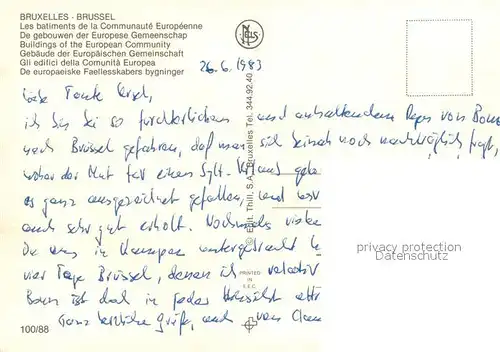 BRUXELLES - BRUSSEL
Les batiments de la Communauté Européenne
De gebouwen der Europese Gemeenschap
Buildings of the European Community
Gebäude der Europäischen Gemeinschaft
Gli edifici della Comunità Europea
De europaeiske Faellesskabers bygninger
NELS
26.6.1983
Liebe Tante
ich bin bei so fürchterlichem und anhaltendem Regen von Bonn
nach Brüssel gefahren, daß man sich beinah noch nachträglich fragt,
woher der Mut für einen Sylt-Urlaub
es ganz ausgezeichnet gefallen, und
auch sehr gut erholt. Nochmals vielen
Du uns in Kampen untergebracht
vier Tage Brüssel, denen ich relativ
Bonn ist doch in jeder Hinsicht
Ganz herzliche Grüße, auch von
© Edit. Thill, S.A. Bruxelles Tel. 344.92.40
PRINTED
IN
E.E.C.
privacy protection
Datenschutz
100/88